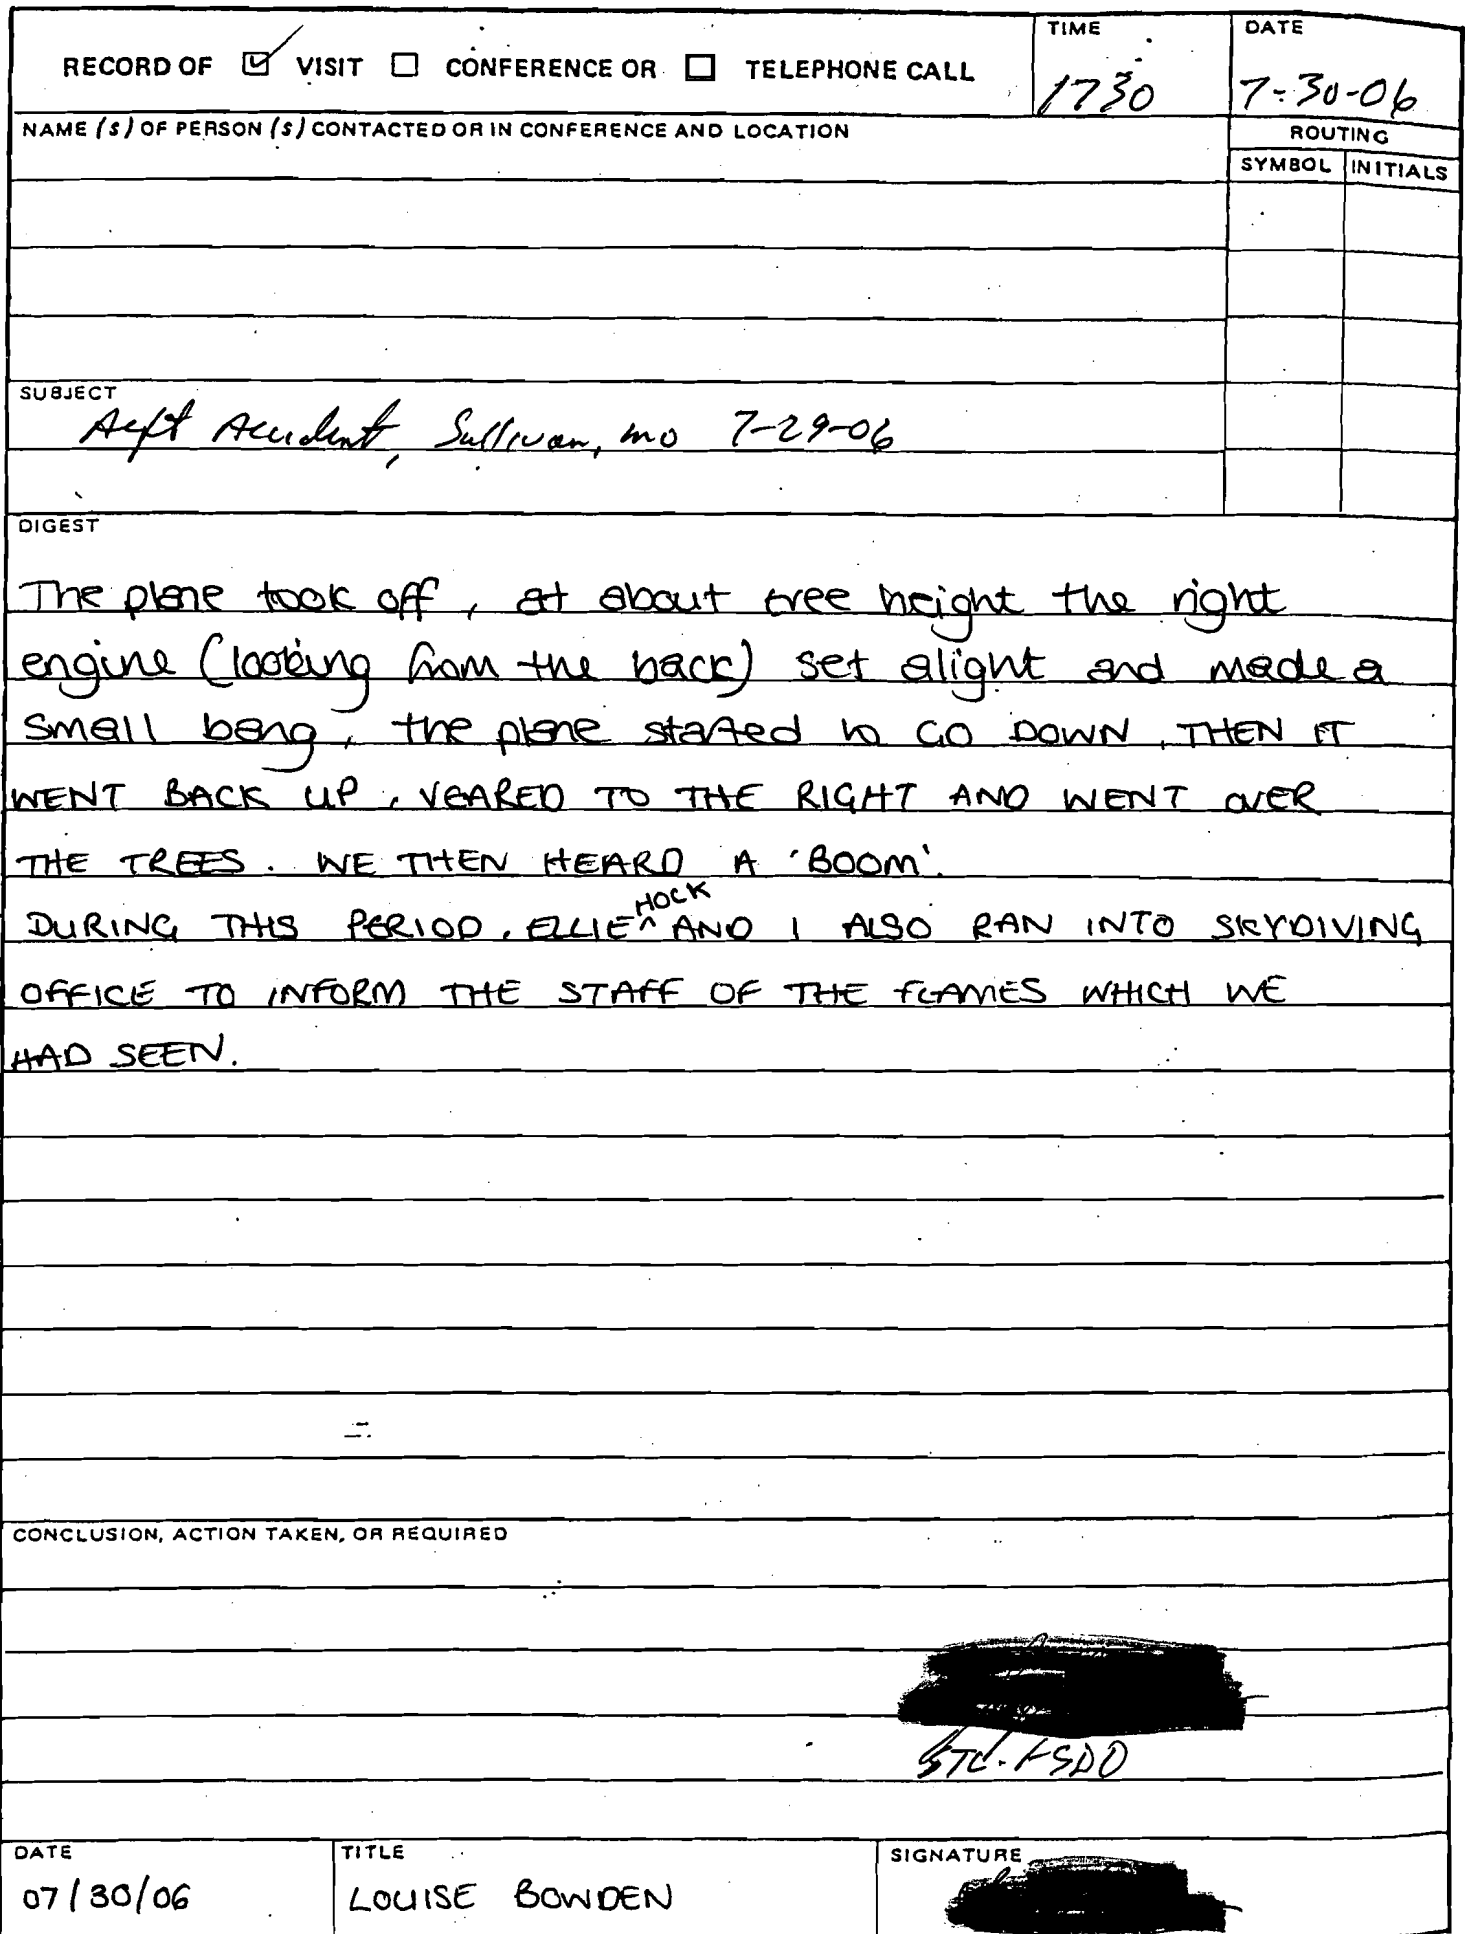 RECORD OF ☑ VISIT ☐ CONFERENCE OR ☐ TELEPHONE CALL
TIME
1730
DATE
7-30-06
NAME (S) OF PERSON (S) CONTACTED OR IN CONFERENCE AND LOCATION
ROUTING
SYMBOL INITIALS
SUBJECT
Acft Accident, Sullivan, mo 7-29-06
DIGEST
The plane took off, at about tree height the right
engine (looking from the back) set alight and made a
small bang, the plane started to GO DOWN, THEN IT
WENT BACK UP, VEARED TO THE RIGHT AND WENT OVER
THE TREES. WE THEN HEARD A 'BOOM'.
DURING THIS PERIOD, ELLIE ^HOCK AND I ALSO RAN INTO SKYDIVING
OFFICE TO INFORM THE STAFF OF THE FLAMES WHICH WE
HAD SEEN.
CONCLUSION, ACTION TAKEN, OR REQUIRED
STL-FSDO
DATE
07/30/06
TITLE
LOUISE BOWDEN
SIGNATURE